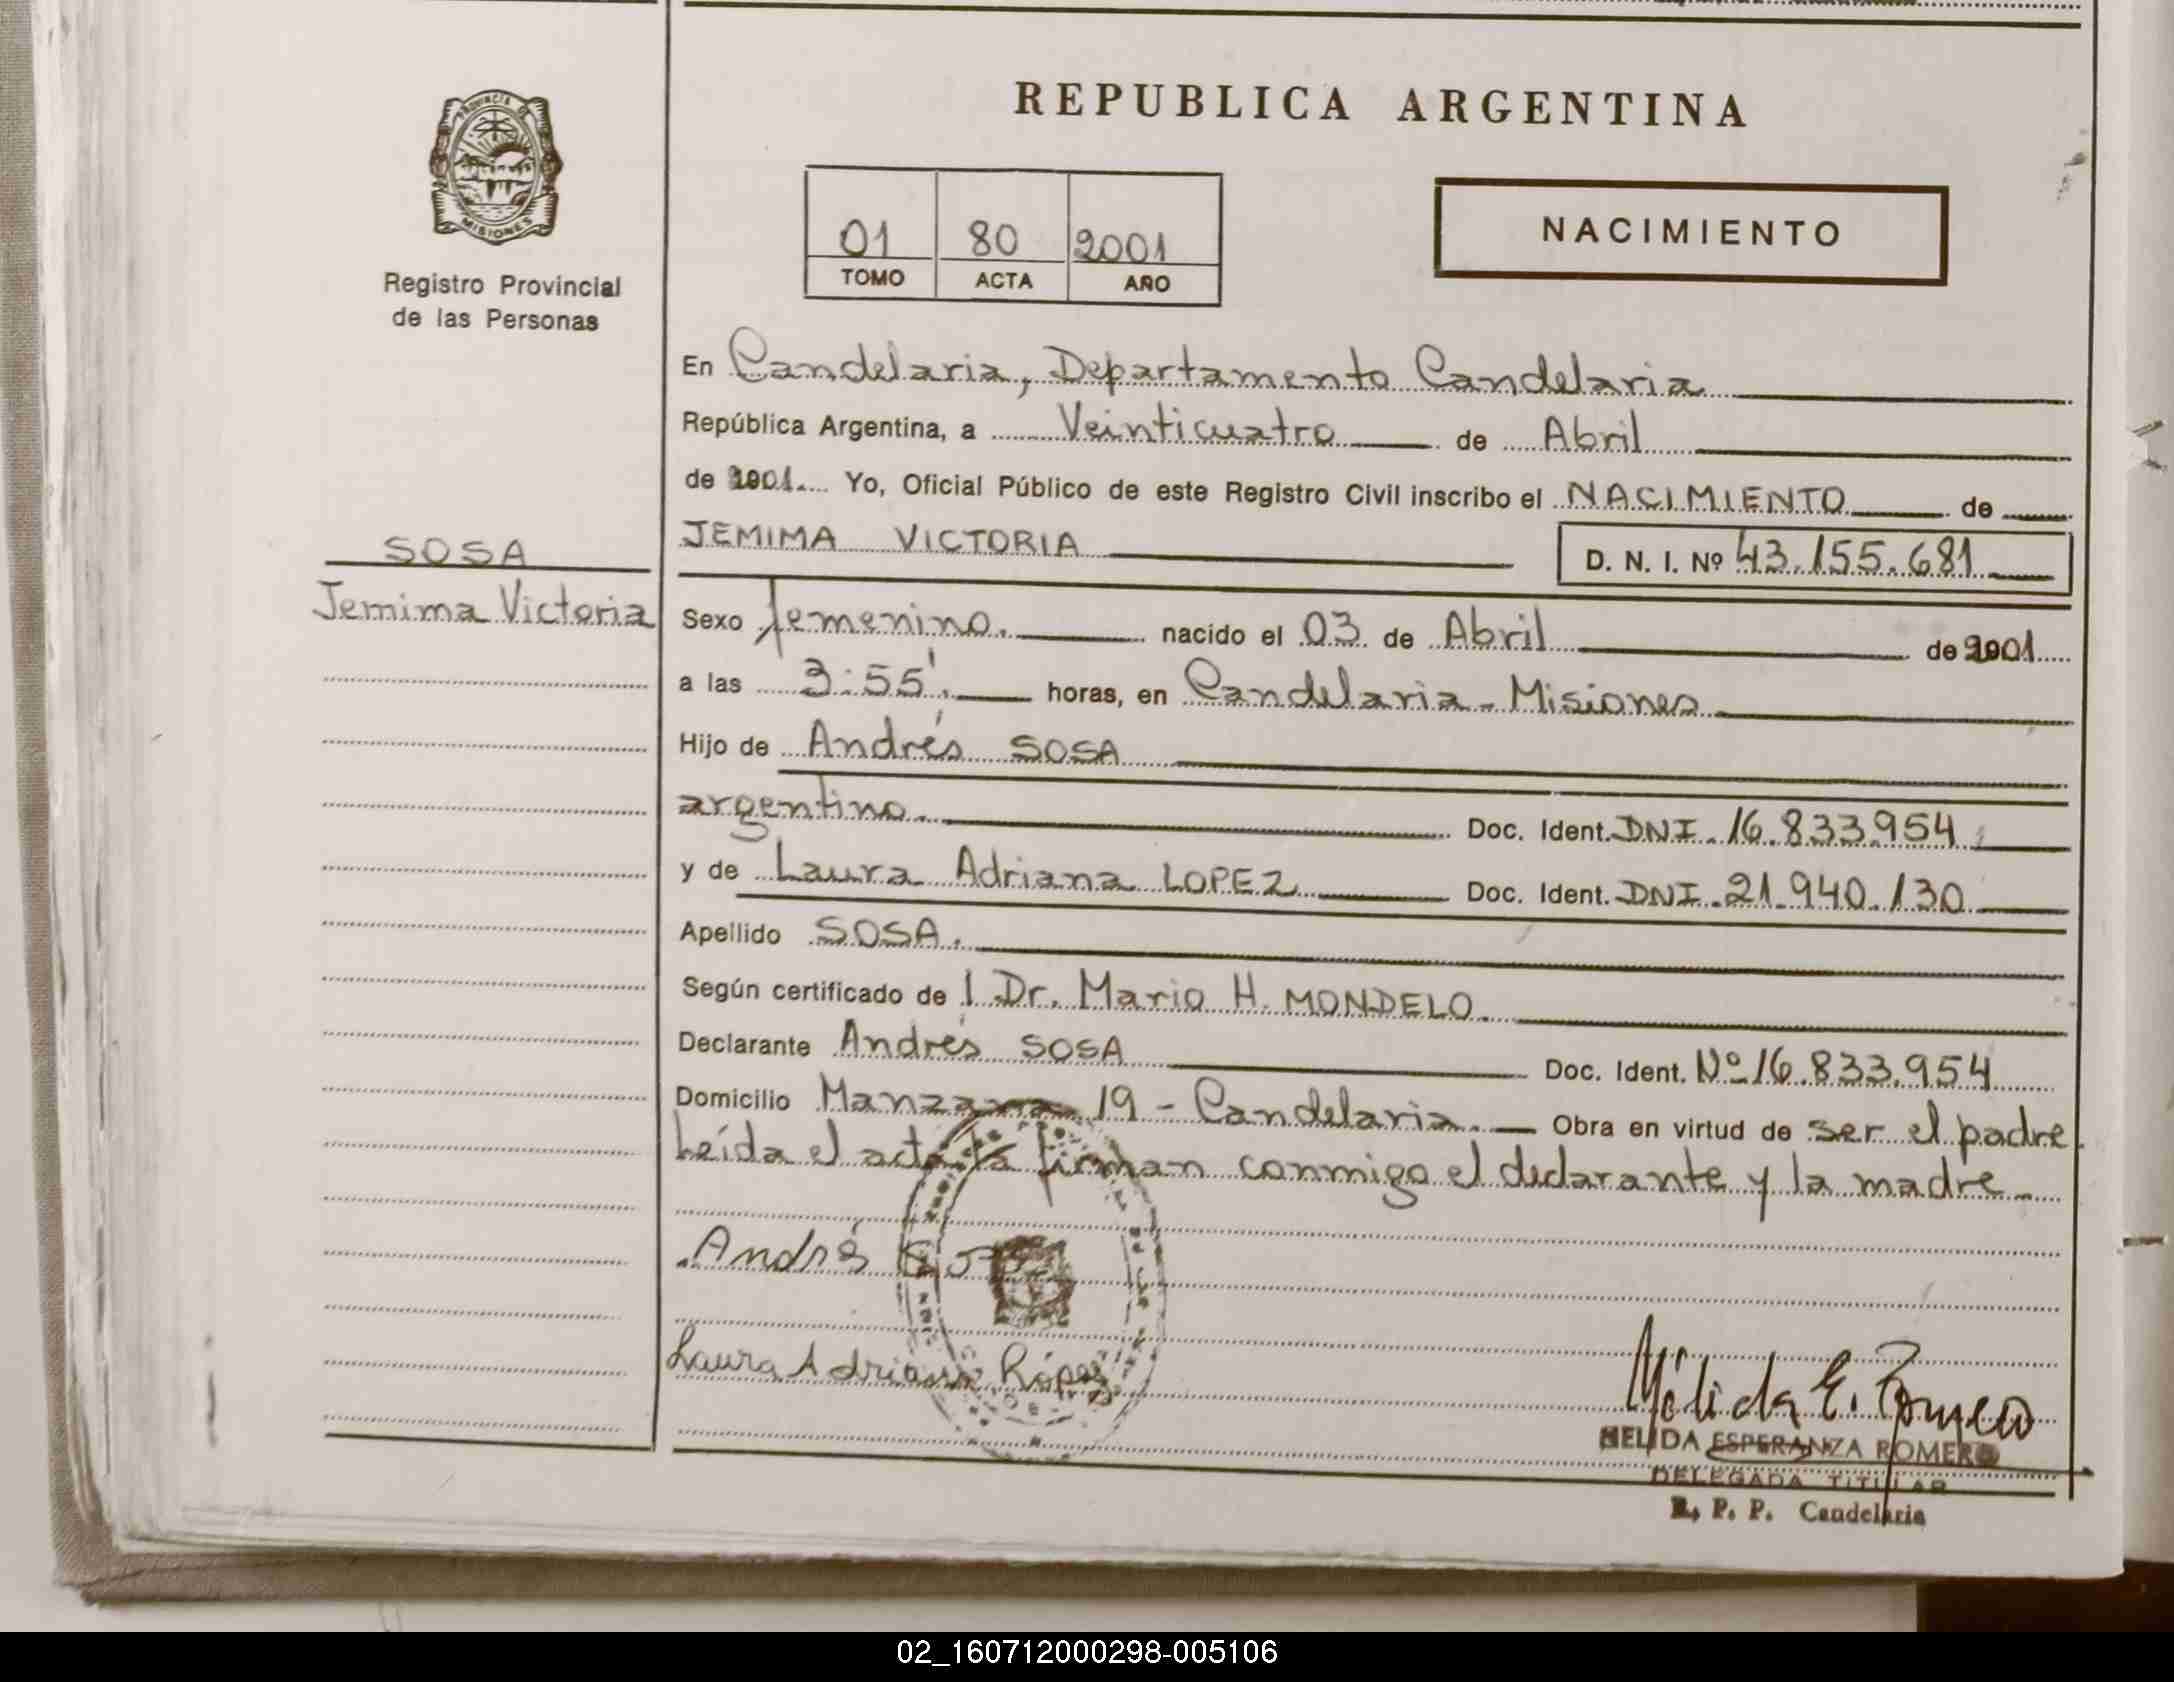 REPUBLICA ARGENTINA
PROVINCIA DE
MISIONES
Registro Provincial
de las Personas
01 80 2001
TOMO ACTA AÑO
NACIMIENTO
En Candelaria, Departamento Candelaria
República Argentina, a Veinticuatro de Abril
de 2001. Yo, Oficial Público de este Registro Civil inscribo el NACIMIENTO de
JEMIMA VICTORIA D. N. I. Nº 43.155.681
SOSA
Jemima Victoria
Sexo femenino. nacido el 03 de Abril de 2001
a las 3:55'. horas, en Candelaria - Misiones
Hijo de Andrés SOSA
argentino. Doc. Ident. DNI. 16.833.954
y de Laura Adriana LOPEZ Doc. Ident. DNI. 21.940.130
Apellido SOSA.
Según certificado de l Dr. Mario H. MONDELO.
Declarante Andrés SOSA Doc. Ident. Nº 16.833.954
Domicilio Manzana 19 - Candelaria. Obra en virtud de ser el padre.
Leída el acta la firman conmigo el declarante y la madre
Andrés Sosa
Laura Adriana López
Nélida E. Romero
NELIDA ESPERANZA ROMERO
DELEGADA TITULAR
R. P. P. Candelaria
02_160712000298-005106